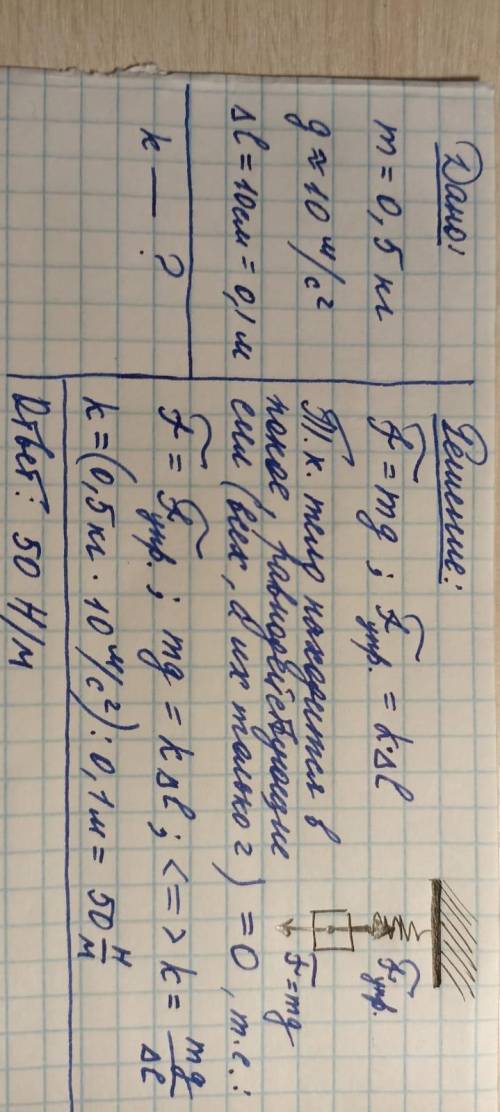 Дано:
m = 0,5 кг
g ≈ 10 м/с²
Δl = 10см = 0,1 м
k — ?
Решение:
F = mg ; F упр. = k·Δl
Т.к. тело находится в
покое, равнодействующие
сил (всех, а их только 2) = 0, т.е.:
F = F упр. ; mg = kΔl ; <=> k = mg/Δl
k = (0,5 кг · 10 м/с²) : 0,1 м = 50 Н/м
Ответ: 50 Н/м
F упр.
F = mg